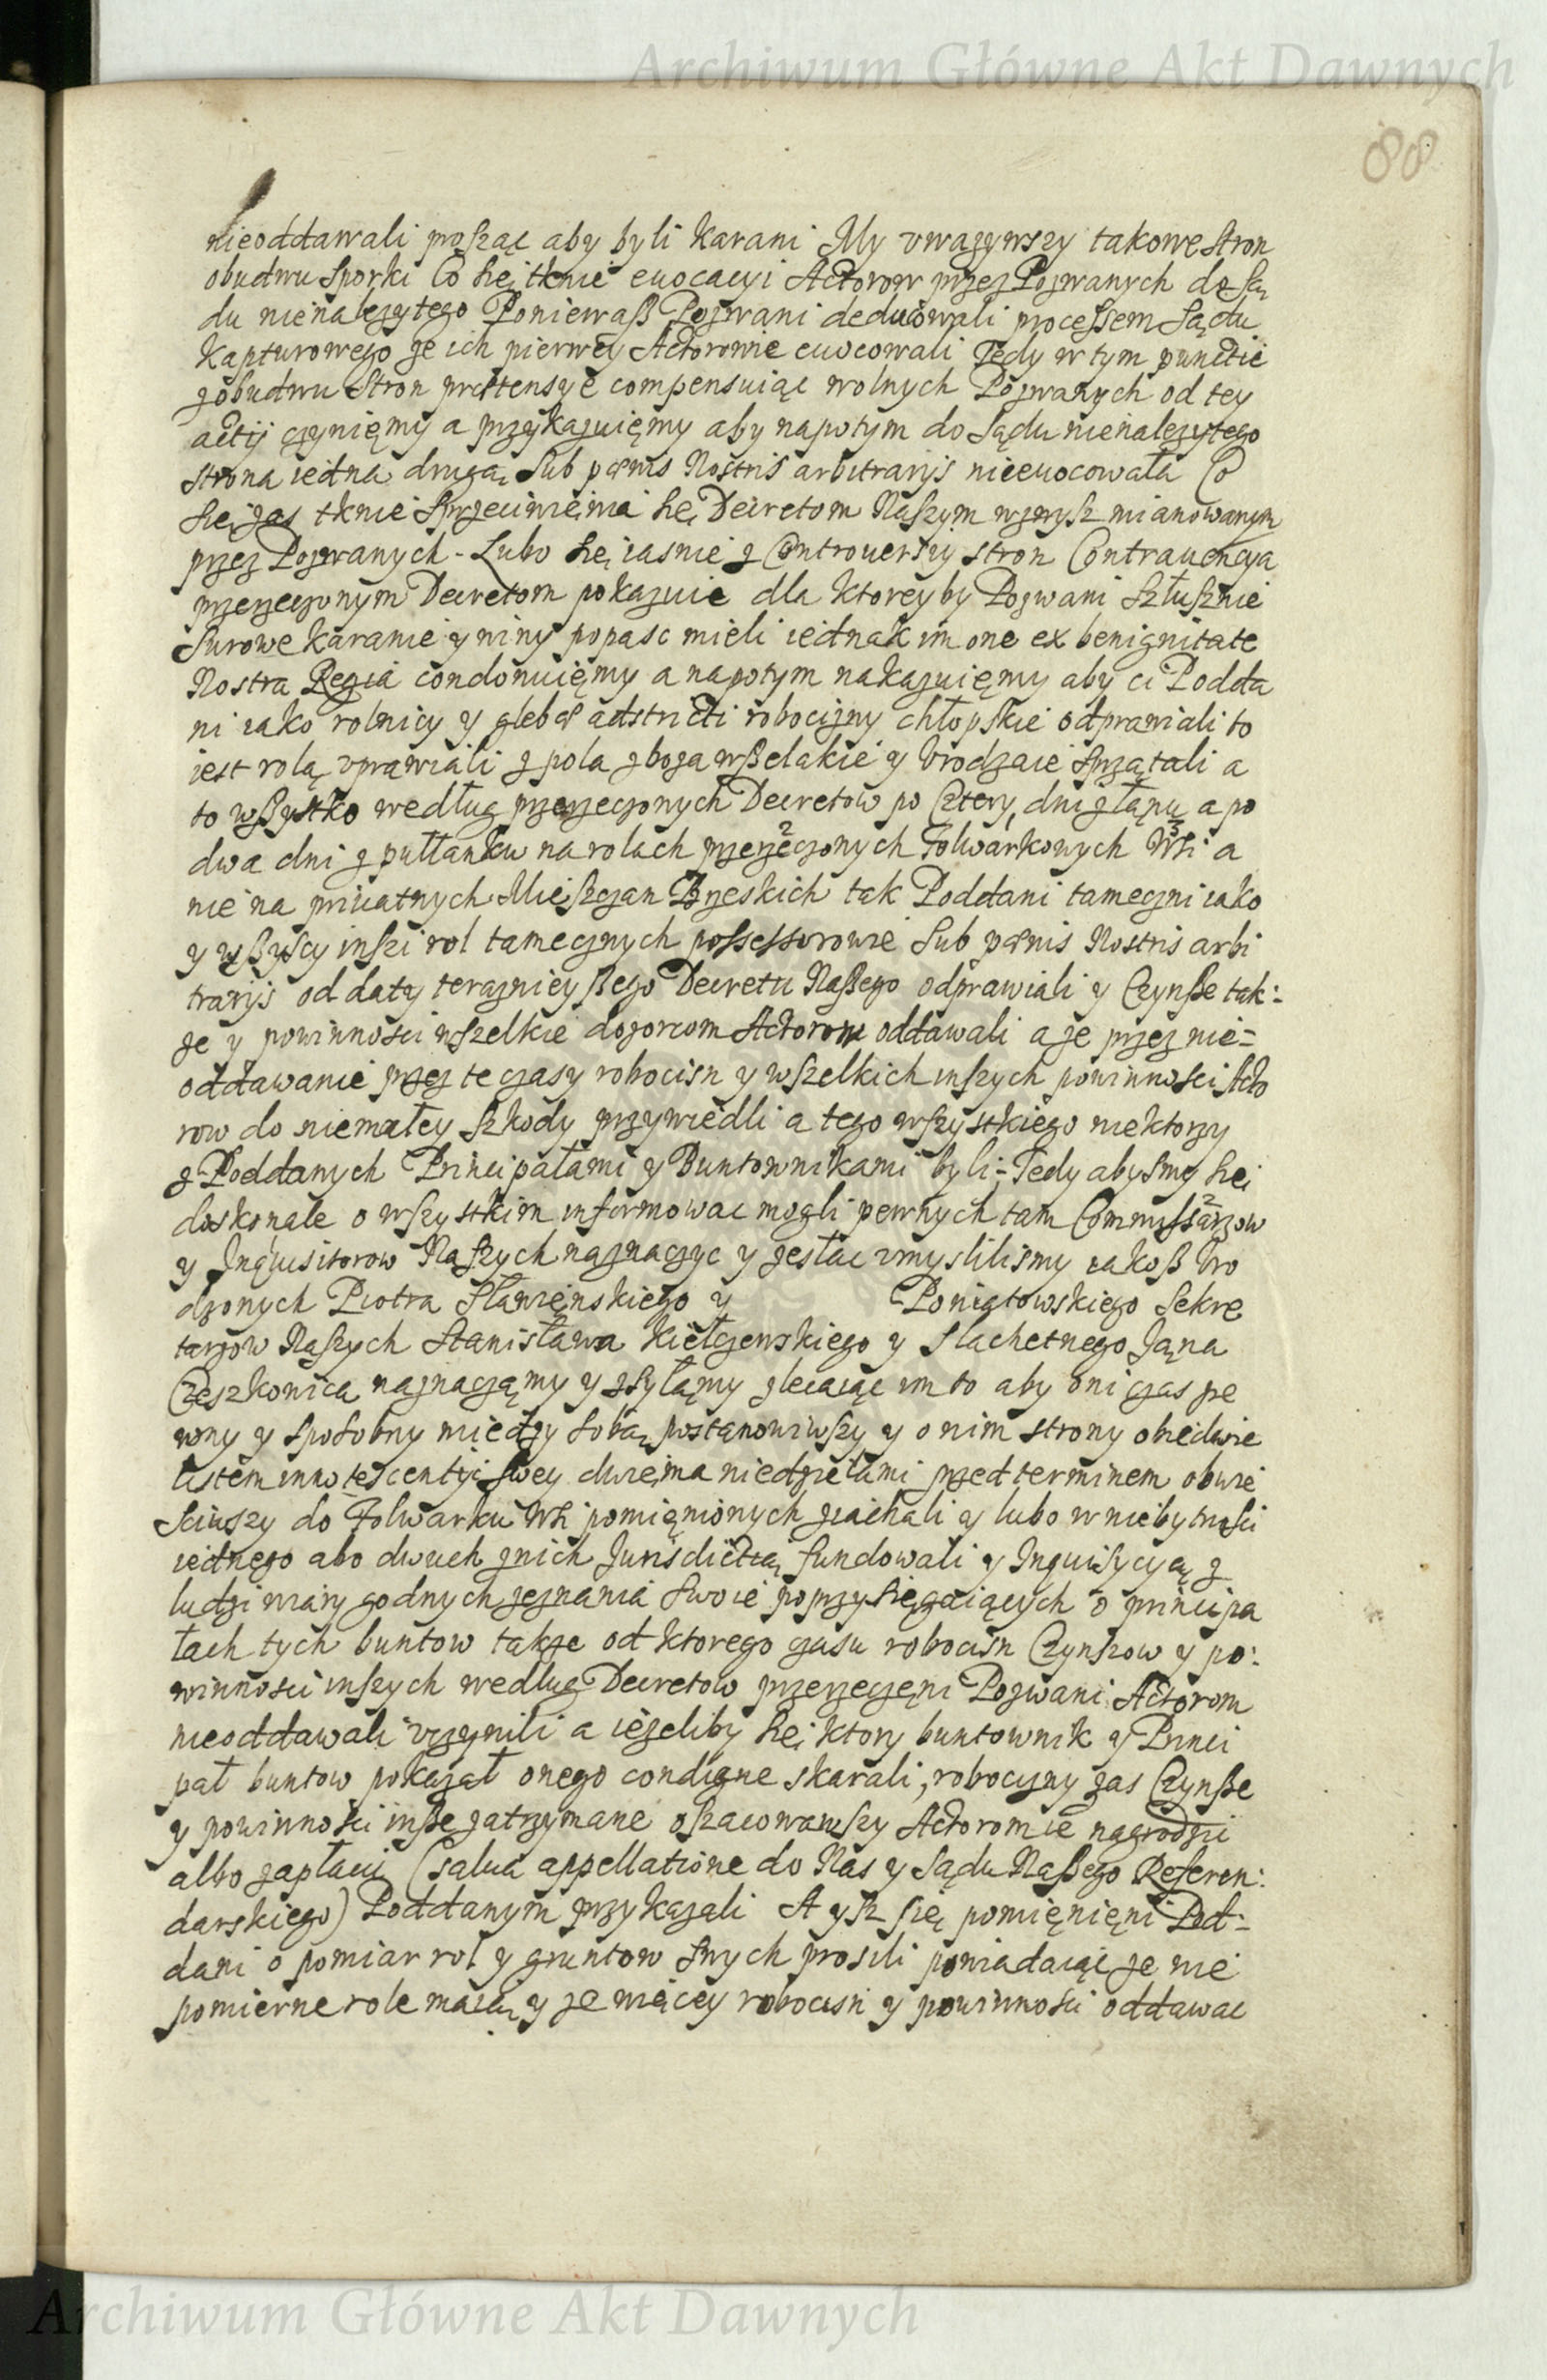 Archiwum Główne Akt Dawnych
88
nieoddawali prosząc aby byli karani My vwazywszy takowe stron
obudwu sporki Co się tknie euocacyi Actorow przez Pozwanych do Są
du nienalezytego Poniewaß Pozwani deducowali processem Sądu
Kapturowego ze ich pierwey Actorowie euocowali Tedy w tym punctie
z obudwu stron prætensye compensuiąc wolnych Pozwanych od tey
actij czynięmy a przykazuięmy aby napotym do Sądu nienalezytego
strona iedna drugą sub pœnis Nostris arbitrarijs nieeuocowała Co
się zas tknie sprzeciwienia się Decretom Naszym wzwysz mianowanym
przez Pozwanych - Lubo się iasnie z Controuersyy stron Contrauencya
przerzeczonym Decretom pokazuie dla ktorey by Pozwani słusznie
surowe karanie y winy popasc mieli iednak im one ex benignitate
Nostra Regia condonuięmy a napotym nakazuięmy aby ci Podda
ni iako rolnicy y glebæ adstricti robocizny chłopskie odprawiali to
iest rolą vprawiali z pola zboza wßelakie y Vrodzaie sprzątali a
to wßystko według przerzeczonych Decretow po Cztery dni z łąnu a po
dwa dni z pułłanku na rolach przerzeczonych Folwarkowych Wsi a
nie na priuatnych Mieszczan Brzeskich tak Poddani tameczni iako
y wßyscy inszi rol tamecznych possessorowie sub pœnis Nostris arbi
trarijs od daty teraznieyßego Decretu Naßego odprawiali y Czynße tak:
ze y powinnosci wszelkie dozorcom Actorom oddawali a ze przez nie=
oddawanie przez te czasy robocizn y wszelkich inszych powinnosci Acto
row do niemałey szkody przywiedli a tego wszystkiego niektorzy
z Poddanych Principałami y Buntownikami byli: Tedy abysmy się
doskonale o wszystkim informowac mogli pewnych tam Commissarzow
y Inquisitorow Naszych naznaczyc y zesłac vmyslilismy iakoß Vro
dzonych Piotra Sławięnskiego y Poniatowskiego Sekre
tarzow Naszych Stanisława Kiełczewskiego y Slachetnego Jąna
Czeszkowica naznacząmy y zsyłąmy zlecaiąc im to aby oni czas pe
wny y sposobny między sobą postanowiwszy y o nim strony obiedwie
listem innotescentyi swey dwiema niedzielami przed terminem obwie
sciwszy do Folwarku Wsi pomięnionych ziachali y lubo w niebytnosci
iednego abo dwuch z nich Jurisdictią fundowali y Inquisycyą z
ludzi wiary godnych zeznania swoie poprzysięgaiących o principa
łach tych buntow takze od ktorego czasu robocisn Czynszow y po:
winnosci inszych według Decretow przerzeczęni Pozwani Actorom
nieoddawali vczynili a iezeliby się ktory buntownik y Princi
pał buntow pokazał onego condigne skarali, robocizny zas Czynße
y powinnosci inße zatrzymane oszacowawszy Actoromie nagrodzic
albo zapłacic (salua appellatione do Nas y Sądu Naßego Referen:
darskiego) Poddanym przykazali A ysz się pomięnięni Pod=
dani o pomiar rol y gruntow swych prosili powiadaiąc ze nie
pomierne role maią y ze więcey robocisn y powinnosci oddawac
Archiwum Główne Akt Dawnych